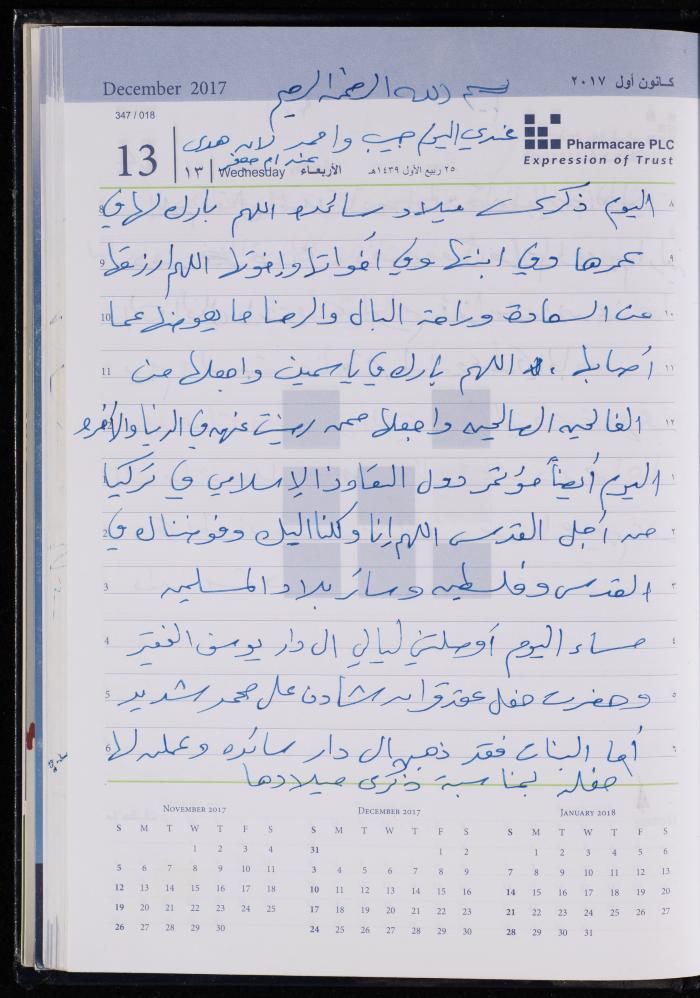 December 2017
كانون أول ٢٠١٧
بسم الله الرحمن الرحيم
347 / 018
عندي اليوم حبيب واحمد لانه هدى
عند ام جعفر
13
١٣
Wednesday
الأربعاء
٢٥ ربيع الأول ١٤٣٩هـ
Pharmacare PLC
Expression of Trust
اليوم ذكرى ميلاد سائده اللهم بارك لها في
عمرها وفي ابنتها وفي أخواتها وإخوتها اللهم ارزقها
من السعادة وراحة البال والرضا ما يعوضها عما
أصابها . اللهم بارك في ياسمين واجعلها من
الفالحين الصالحين واجعلها ممن رضيت عنهم في الدنيا والآخره
اليوم أيضاً مؤتمر دول التعاون الإسلامي في تركيا
من أجل القدس اللهم إنا وكلنا اليك وفوضناك في
القدس وفلسطين وسائر بلاد المسلمين
مساء اليوم أوصلتني ليالي ال دار يوسف الفقير
وحضرت حفل عقد قران شادن على محمد شديد
أما البنات فقد ذهبن ال دار سائده وعملن لها
حفلة بمناسبة ذكرى ميلادها
8 ٨
9 ٩
10 ١٠
11 ١١
١٢
١
2 ٢
3 ٣
4 ٤
5 ٥
6 ٦
November 2017
S M T W T F S
1 2 3 4
5 6 7 8 9 10 11
12 13 14 15 16 17 18
19 20 21 22 23 24 25
26 27 28 29 30
December 2017
S M T W T F S
31 1 2
3 4 5 6 7 8 9
10 11 12 13 14 15 16
17 18 19 20 21 22 23
24 25 26 27 28 29 30
January 2018
S M T W T F S
1 2 3 4 5 6
7 8 9 10 11 12 13
14 15 16 17 18 19 20
21 22 23 24 25 26 27
28 29 30 31